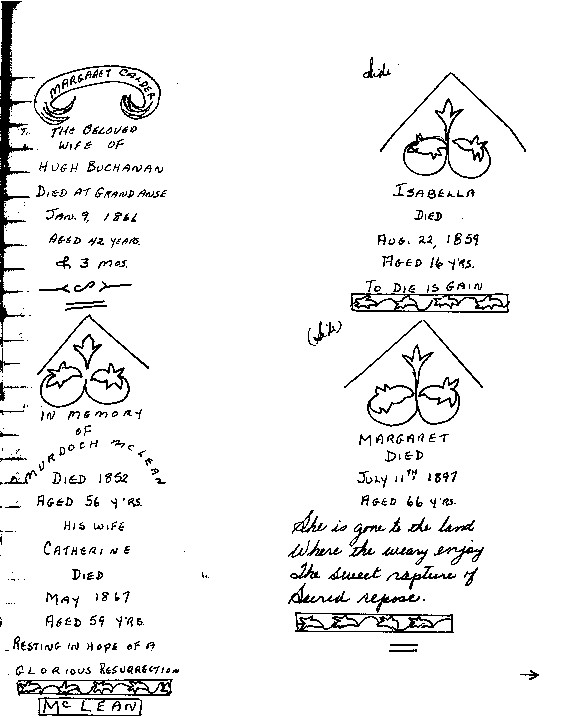 MARGARET CALDER
THE BELOVED
WIFE OF
HUGH BUCHANAN
DIED AT GRAND ANSE
JAN. 9, 1866
AGED 42 YEARS.
& 3 MOS.
IN MEMORY
OF
MURDOCH MCLEAN
DIED 1852
AGED 56 Y'RS.
HIS WIFE
CATHERINE
DIED
MAY 1867
AGED 59 YRS.
RESTING IN HOPE OF A
GLORIOUS RESURRECTION
MCLEAN
Side
ISABELLA
DIED
AUG. 22, 1859
AGED 16 Y'RS.
TO DIE IS GAIN
(Side)
MARGARET
DIED
JULY 11TH 1897
AGED 66 YRS.
She is gone to the land
Where the weary enjoy
The sweet rapture of
Sacred repose.